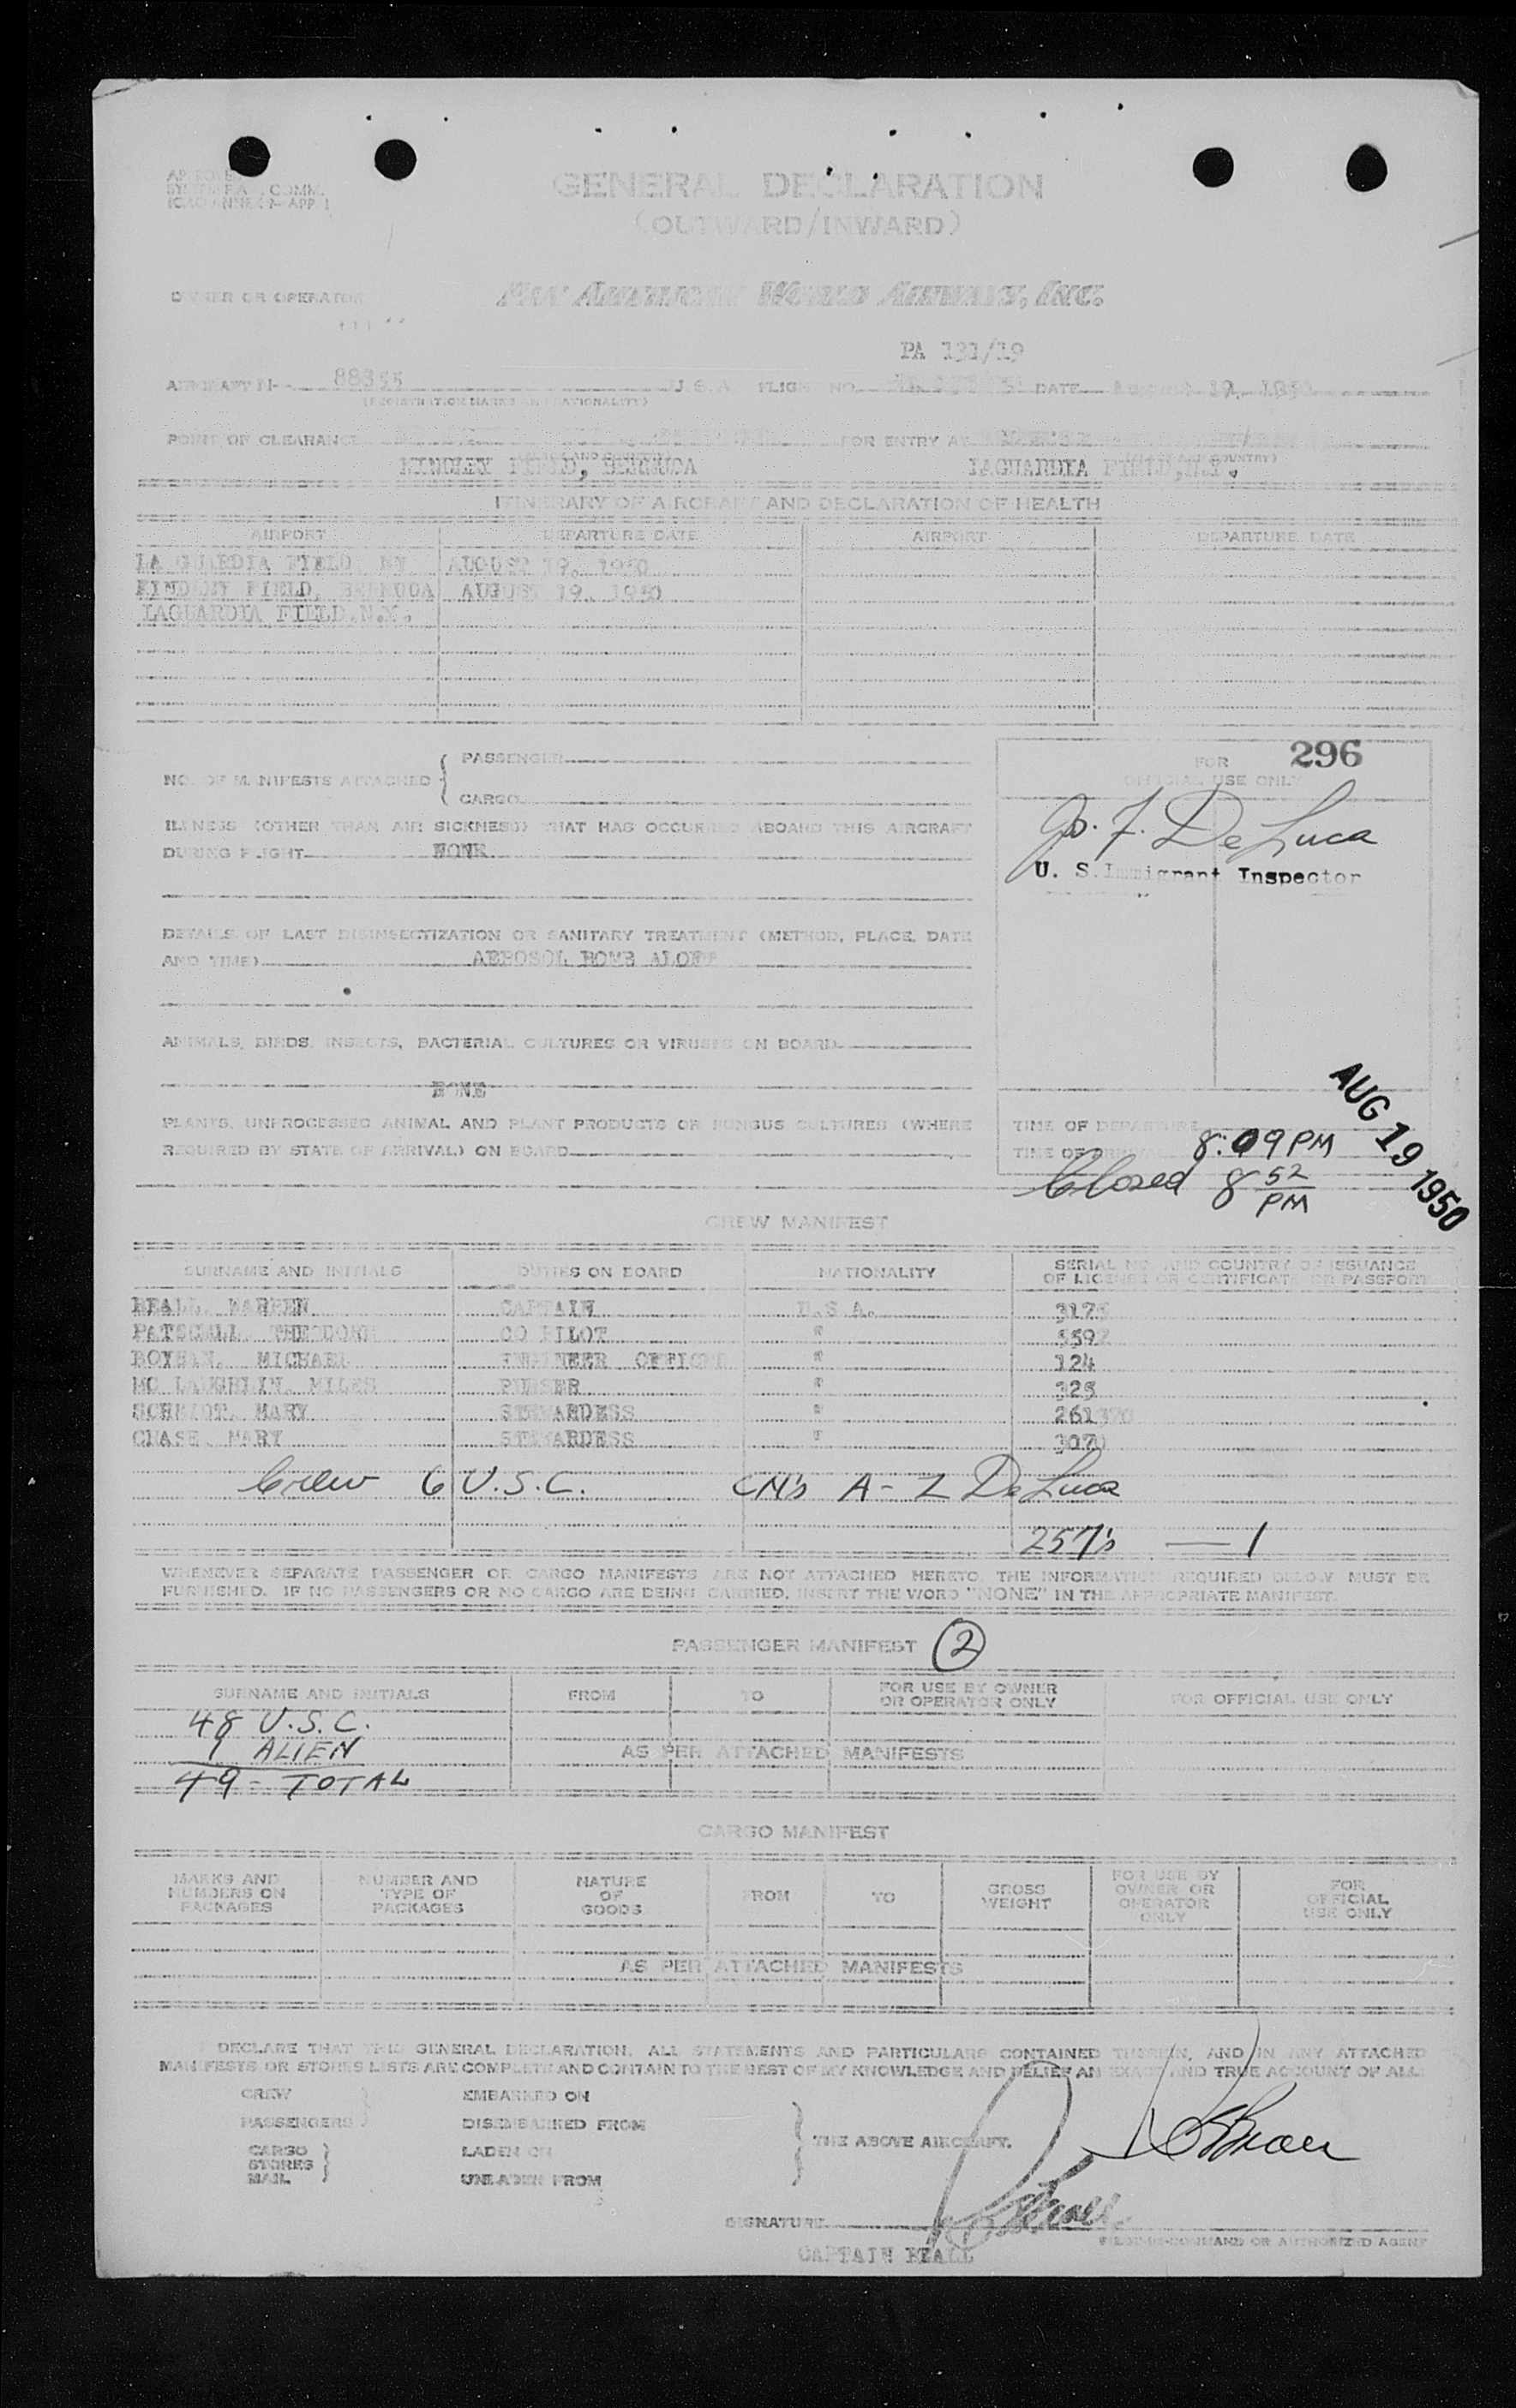 GENERAL DECLARATION
(OUTWARD/INWARD)
OWNER OR OPERATOR PAN AMERICAN WORLD AIRWAYS, INC.
PA 131/19
AIRCRAFT N- 88355 U.S.A. FLIGHT NO. DATE August 19, 1950
(REGISTRATION MARKS AND NATIONALITY)
POINT OF CLEARANCE FOR ENTRY AT
KINDLEY FIELD, BERMUDA LAGUARDIA FIELD, N.Y.
ITINERARY OF AIRCRAFT AND DECLARATION OF HEALTH
AIRPORT DEPARTURE DATE AIRPORT DEPARTURE DATE
LA GUARDIA FIELD NY AUGUST 19, 1950
KINDLEY FIELD, BERMUDA AUGUST 19, 1950
LAGUARDIA FIELD.N.Y.
296
PASSENGER
NO. OF MANIFESTS ATTACHED
CARGO
FOR
OFFICIAL USE ONLY
ILLNESS (OTHER THAN AIR SICKNESS) THAT HAS OCCURRED ABOARD THIS AIRCRAFT
DURING FLIGHT NONE
De Luca
U. S. Immigrant Inspector
DETAILS OF LAST DISINSECTIZATION OR SANITARY TREATMENT (METHOD, PLACE, DATE
AND TIME) AEROSOL BOMB ALOFT
ANIMALS, BIRDS, INSECTS, BACTERIAL CULTURES OR VIRUSES ON BOARD
NONE
PLANTS, UNPROCESSED ANIMAL AND PLANT PRODUCTS OR FUNGUS CULTURES (WHERE
REQUIRED BY STATE OF ARRIVAL) ON BOARD
TIME OF DEPARTURE
TIME OF ARRIVAL 8:09 PM
Closed 8 52 PM
AUG 19 1950
CREW MANIFEST
SURNAME AND INITIALS DUTIES ON BOARD NATIONALITY SERIAL NO. AND COUNTRY OF ISSUANCE
OF LICENSE OR CERTIFICATE OR PASSPORT
BEALL, WARREN CAPTAIN U.S.A.
THEODORE CO PILOT "
MICHAEL ENGINEER OFFICER " 124
MC LAUGHLIN, MILES PURSER "
SCHMIDT, MARY STEWARDESS "
CHASE, MARY STEWARDESS "
Crew 6 U.S.C. CM's A-Z De Luca
257's — 1
WHENEVER SEPARATE PASSENGER OR CARGO MANIFESTS ARE NOT ATTACHED HERETO, THE INFORMATION REQUIRED BELOW MUST BE
FURNISHED. IF NO PASSENGERS OR NO CARGO ARE BEING CARRIED, INSERT THE WORD "NONE" IN THE APPROPRIATE MANIFEST.
PASSENGER MANIFEST 2
SURNAME AND INITIALS FROM TO FOR USE BY OWNER
OR OPERATOR ONLY FOR OFFICIAL USE ONLY
48 U.S.C.
1 ALIEN
AS PER ATTACHED MANIFESTS
49 - TOTAL
CARGO MANIFEST
MARKS AND
NUMBERS ON
PACKAGES
NUMBER AND
TYPE OF
PACKAGES
NATURE
OF
GOODS
FROM
TO
GROSS
WEIGHT
FOR USE BY
OWNER OR
OPERATOR
ONLY
FOR
OFFICIAL
USE ONLY
AS PER ATTACHED MANIFESTS
I DECLARE THAT THIS GENERAL DECLARATION, ALL STATEMENTS AND PARTICULARS CONTAINED THEREIN, AND IN ANY ATTACHED
MANIFESTS OR STORES LISTS ARE COMPLETE AND CONTAIN TO THE BEST OF MY KNOWLEDGE AND BELIEF AN EXACT AND TRUE ACCOUNT OF ALL
CREW EMBARKED ON
PASSENGERS DISEMBARKED FROM
CARGO LADEN ON
STORES
MAIL UNLADEN FROM
THE ABOVE AIRCRAFT.
SIGNATURE
CAPTAIN BEALL
PILOT-IN-COMMAND OR AUTHORIZED AGENT